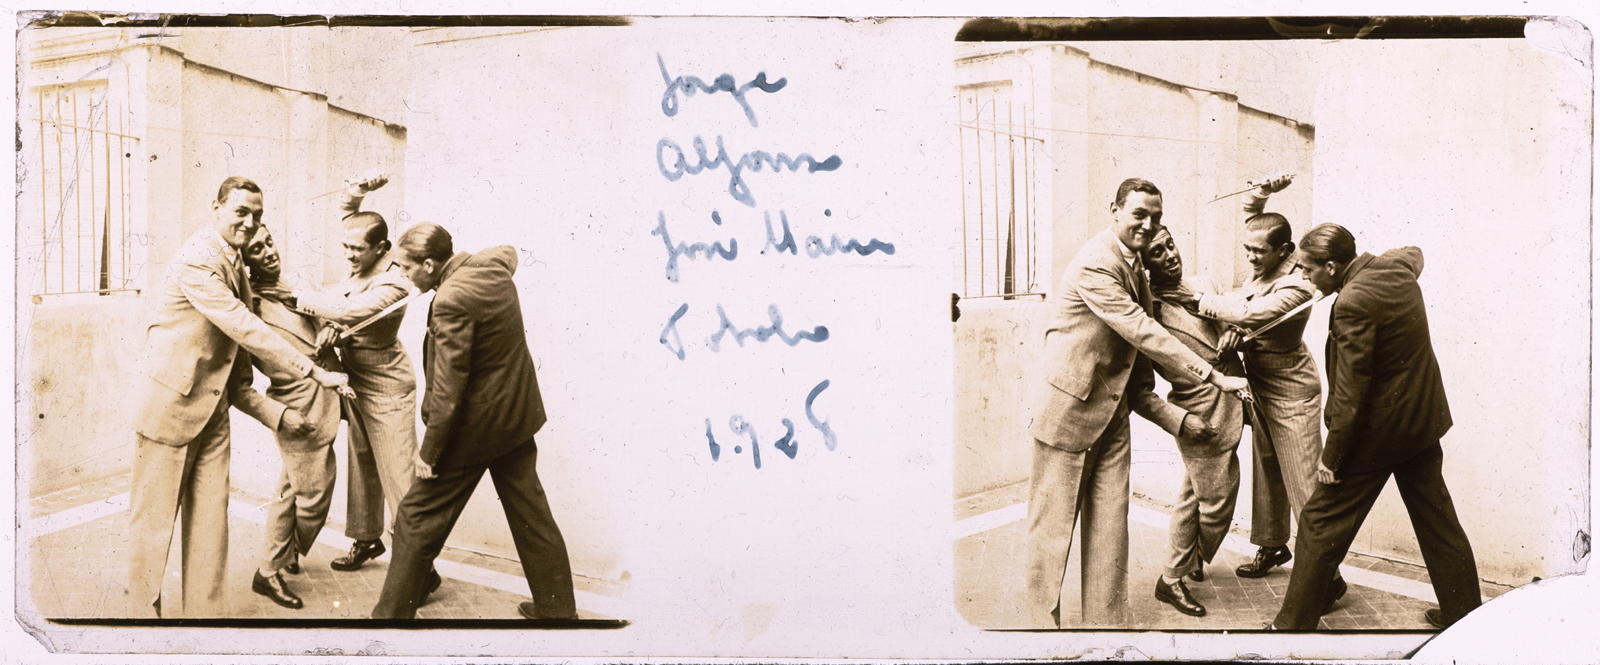 Jorge
Alfonso
José Maria
1.928